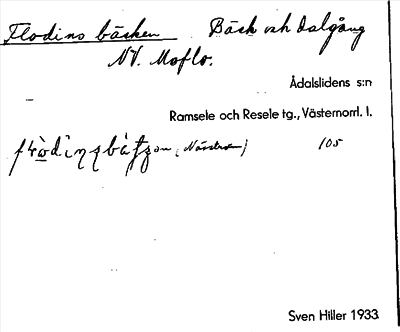 Flodins bäcken Bäck och dalgång
NV. Moflo.
Ådalslidens s:n
Ramsele och Resele tg., Västernorrl. l.
105
Sven Hiller 1933